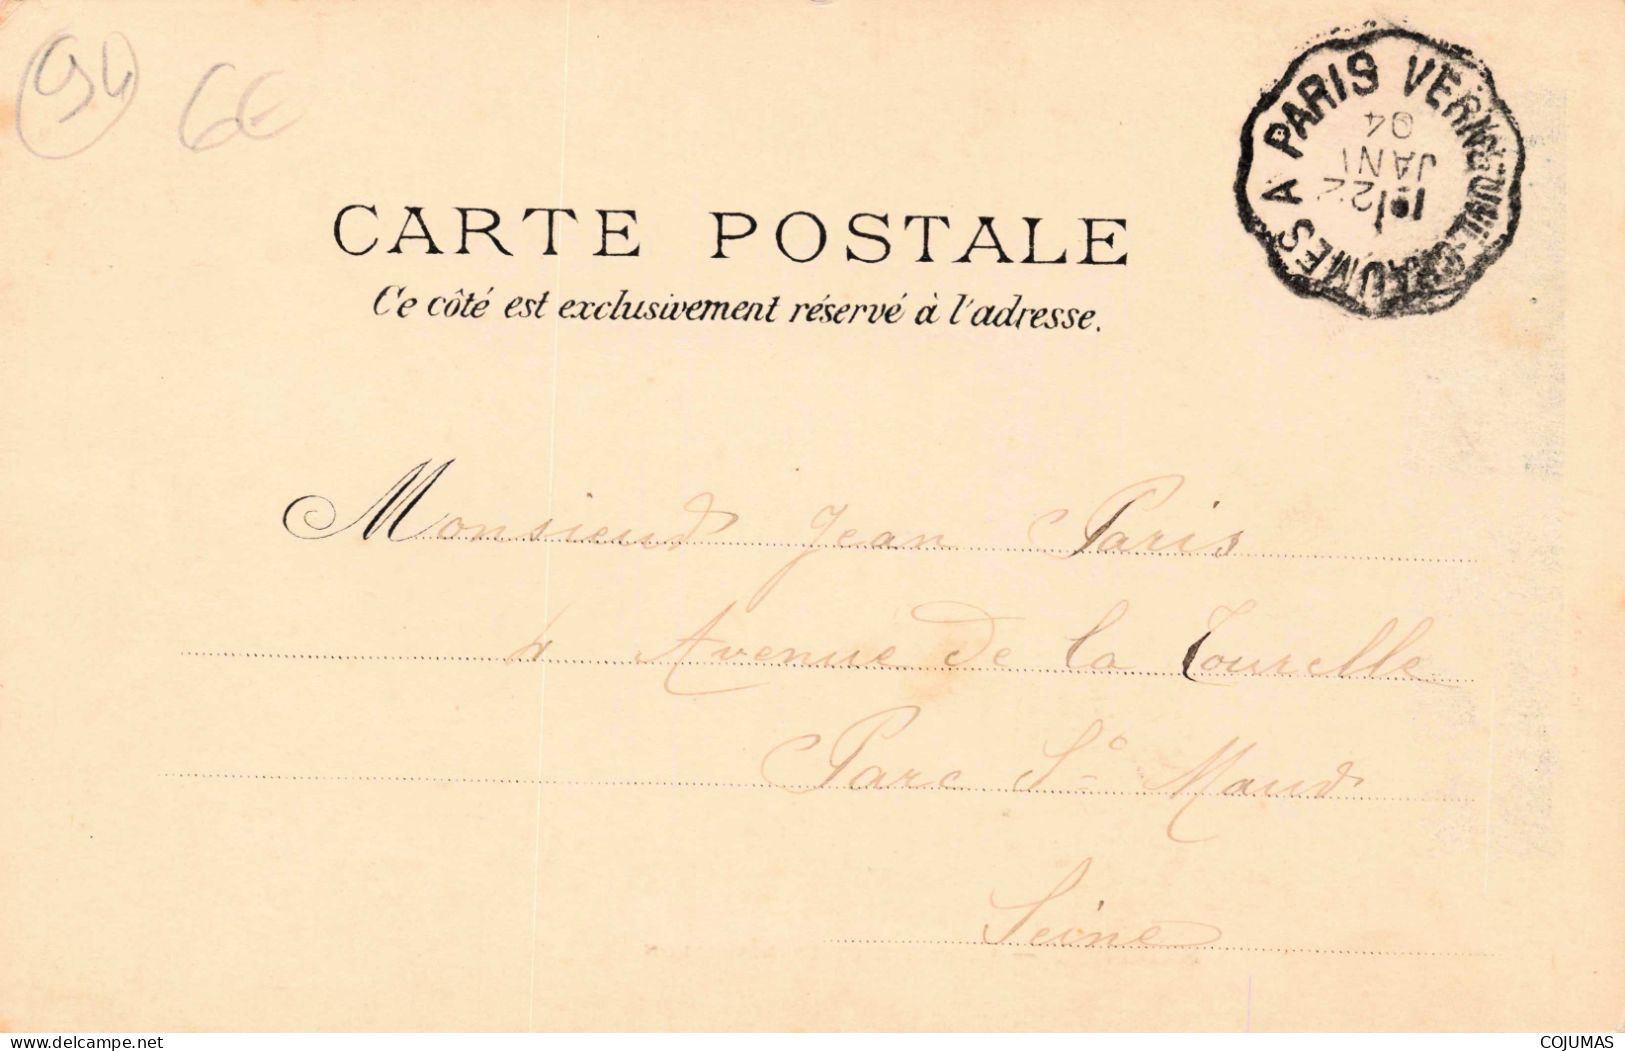 94 6€
VERNEUIL-CHAUMES A PARIS
1º/22
JANV
04
CARTE POSTALE
Ce côté est exclusivement réservé à l'adresse.
Monsieur Jean Paris
4 Avenue de la Tourelle
Parc St Maur
Seine
www.delcampe.net
COJUMAS